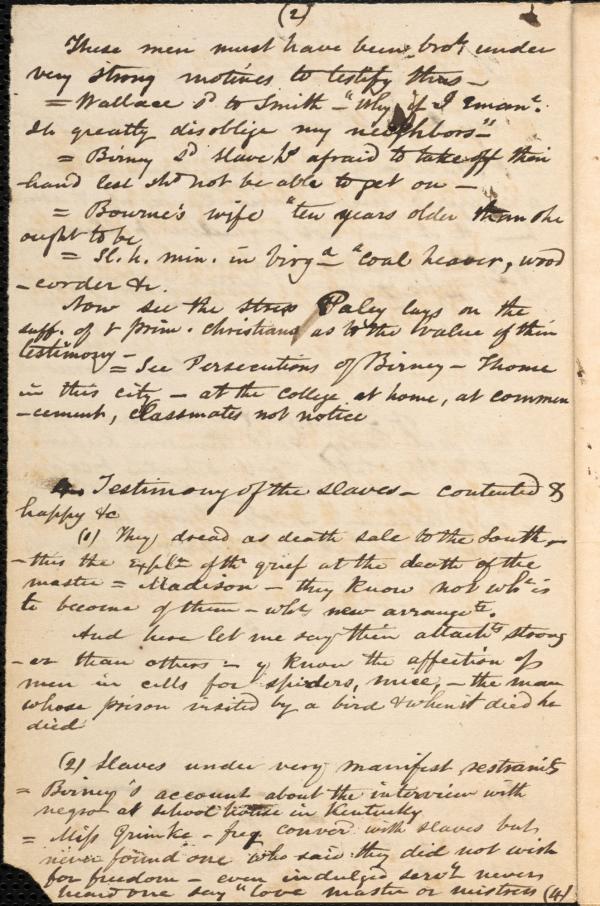 (2)
These men must have been brot under
very strong motives to testify thus –
= Wallace sd to Smith – "Why if I emanc.
Sh greatly disoblige my neighbors"
= Birney sd slave hs afraid to take off their
hand lest shd not be able to get on –
= Bourne's wife "ten years older than she
ought to be
= Sl. h. min. in Virga – "Coal heaver, wood
– corder &c.
Now see the stress Paley lays on the
suff. of t prim. christians as to the value of their
testimony –
= See Persecutions of Birney – Thome
in this city – at the college at home, at commen
– cement, classmates not notice
4. Testimony of the slaves – contented &
happy &c
(1) They dread as death sale to the South, –
– this the expln of th grief at the death of the
master = Madison – they know not wht is
to become of them – wht new arrangets.
And here let me say their attachts strong
– er than others – y know the affection of
men in cells for spiders, mice, – the man
whose prison visited by a bird & when it died he
died
(2) Slaves under very manifest restraints
= Birney's account about the interview with
negro at school house in Kentucky
= Miss Grimke – freq convers with slaves but
never found one who said they did not wish
for freedom – even indulged servts never
heard one say "love master or mistress (4)